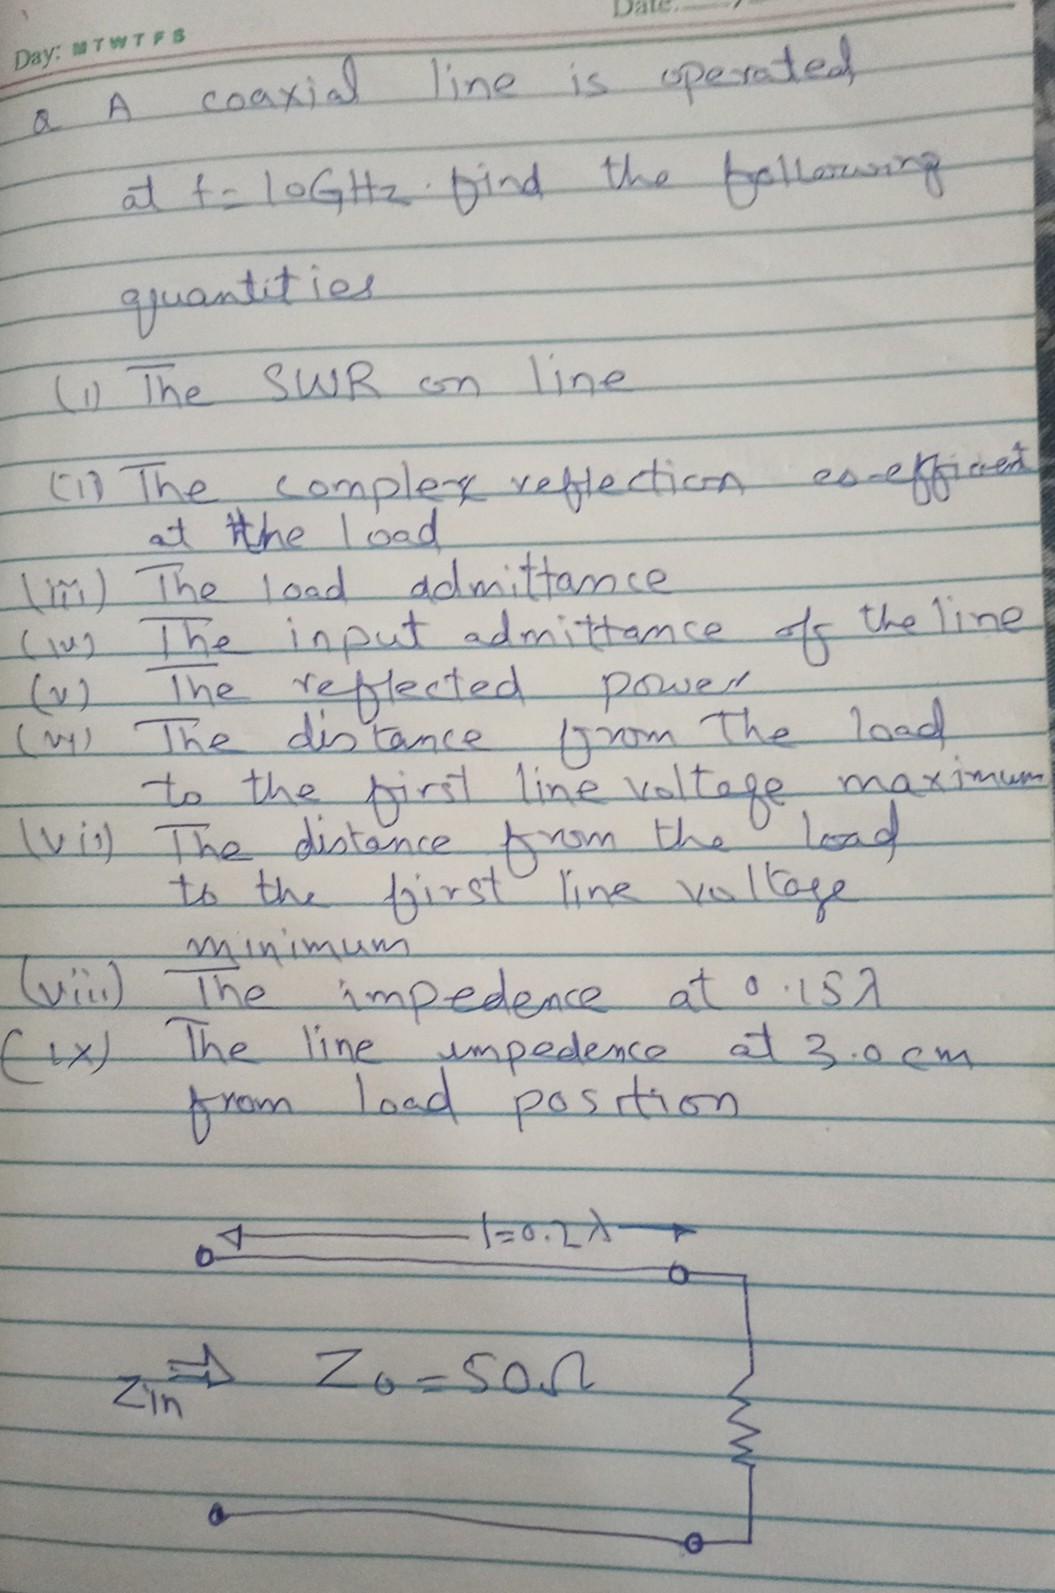 Date.
Day: M T W T F S
Q A coaxial line is operated
at f = 10GHz. find the following
quantities
(i) The SWR on line
(ii) The complex reflection co-efficient
at the load
(iii) The load admittance
(iv) The input admittance of the line
(v) The reflected power
(vi) The distance from the load
to the first line voltage maximum
(vii) The distance from the load
to the first line voltage
minimum
(viii) The impedence at 0.15λ
(ix) The line impedence at 3.0cm
from load position
l=0.2λ
Zin Z0=50Ω